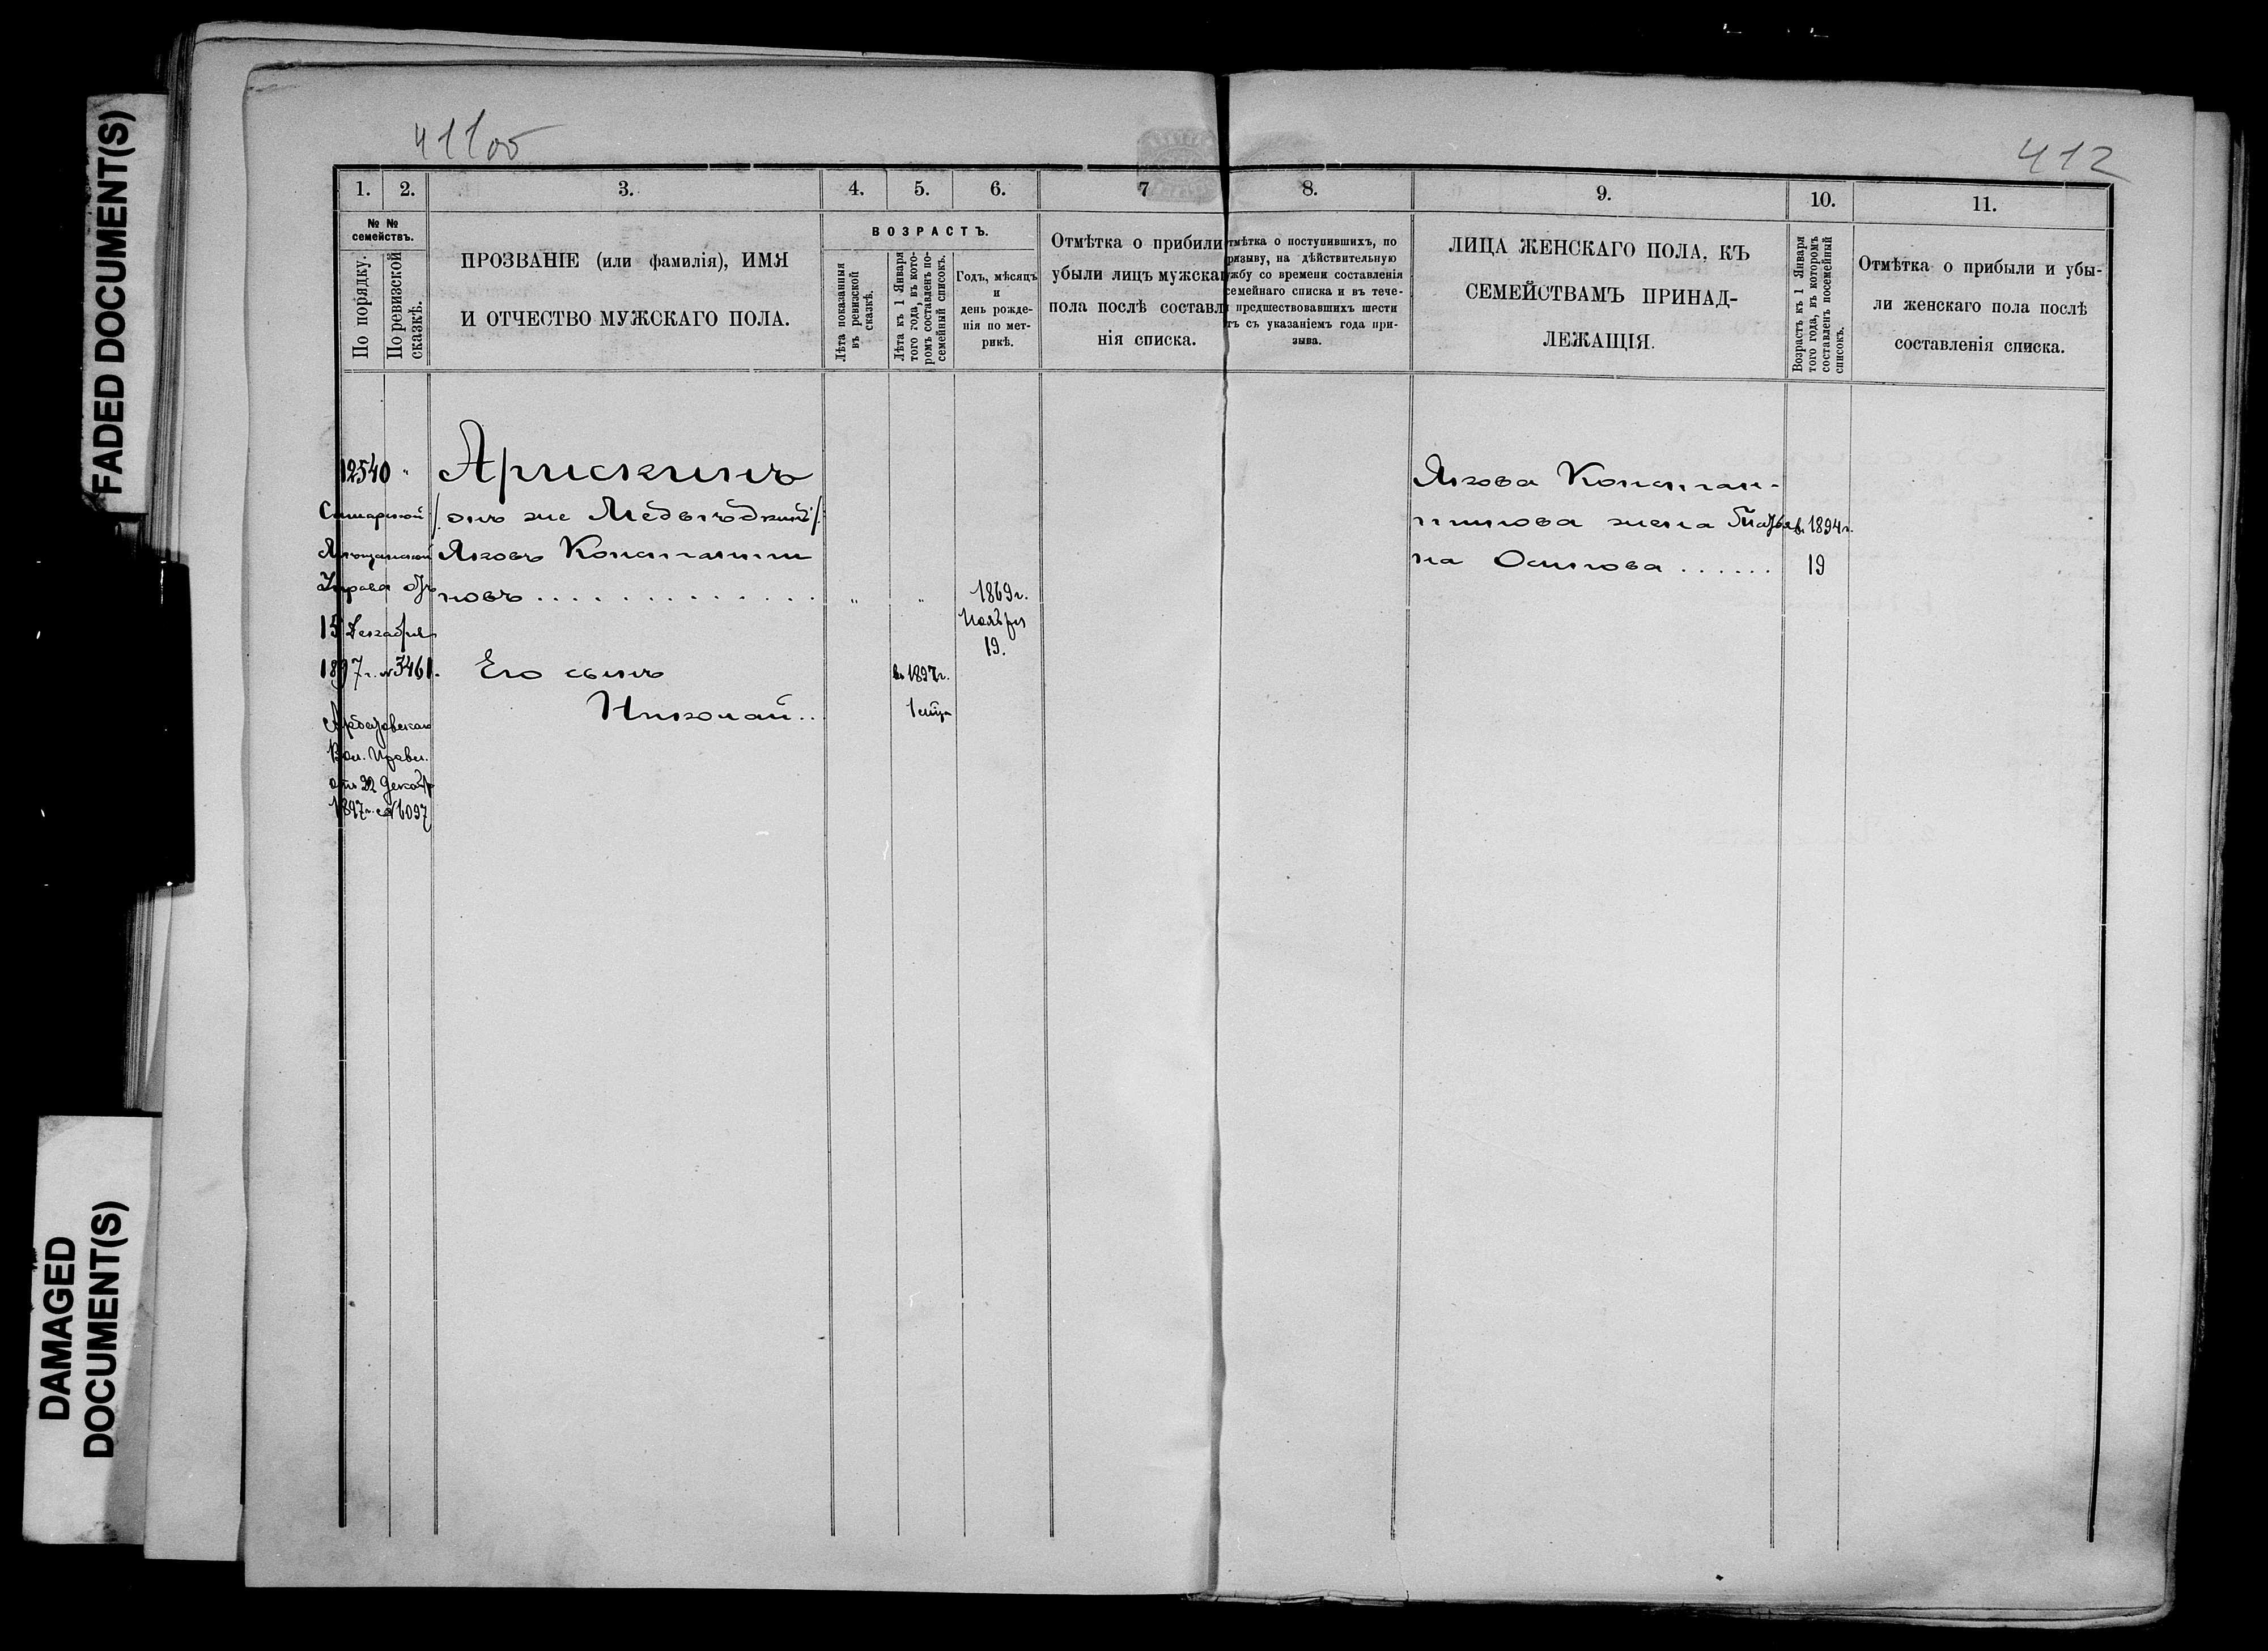 FADED DOCUMENT(S)
DAMAGED
DOCUMENT(S)
411об
412
1.
2.
3.
4.
5.
6.
7
8.
9.
10.
11.
№ №
семействъ.
По порядку.
По ревизской
сказкѣ.
ПРОЗВАНІЕ (или фамилія), ИМЯ
И ОТЧЕСТВО МУЖСКАГО ПОЛА.
ВОЗРАСТЪ.
Лѣта показанныя
въ ревизской
сказкѣ.
Лѣта къ 1 Января
того года, въ кото-
ромъ составленъ по-
семейный списокъ.
Годъ, мѣсяцъ
и
день рожде-
нія по мет-
рикѣ.
Отмѣтка о прибыли
убыли лицъ мужскаг
пола послѣ составл
нія списка.
тмѣтка о поступившихъ, по
ризыву, на дѣйствительную
ужбу со времени составленія
семейнаго списка и въ тече-
предшествовавшихъ шести
тъ съ указаніемъ года при-
зыва.
ЛИЦА ЖЕНСКАГО ПОЛА, КЪ
СЕМЕЙСТВАМЪ ПРИНАД-
ЛЕЖАЩІЯ.
Возрастъ къ 1 Января
того года, въ которомъ
составленъ посемейный
списокъ.
Отмѣтка о прибыли и убы-
ли женскаго пола послѣ
составленія списка.
12540 "
Арискинъ
/онъ же Медвѣдкинъ/
Яковъ Константи
новъ . . . . . . . . . . . . .
" "
1869 г.
Ноября
19.
Его сынъ
Николай . .
въ 1897 г.
Управа отъ
15 Декабря
1897 г. № 3461.
Вол. Правл.
отъ 22 Декабр
1897 г. № 6097
Якова Констан-
тинова жена
на Осипова . . . . . .
въ 1894 г.
19